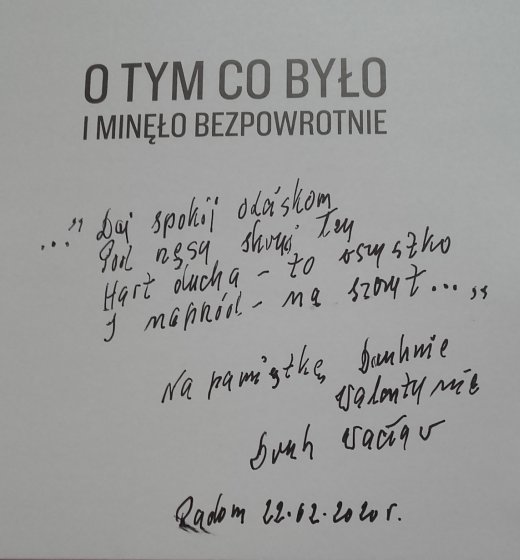 O TYM CO BYŁO
I MINĘŁO BEZPOWROTNIE
..." Daj spokój
Pod rzęsy skryj łzy
Hart ducha - to wszystko
I naprzód - na szczyt ... "
Na pamiątkę Druhnie
Walentynie
Druh Wacław
Radom 22.02.2020 r.